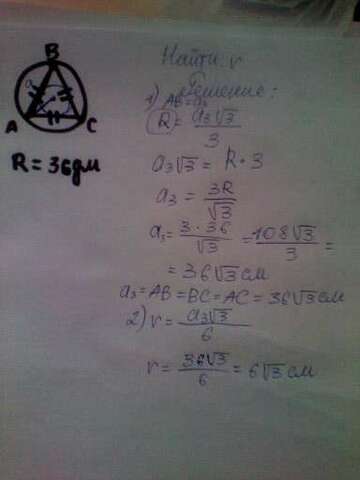 Найти r
Решение:
B
A
C
R = 36дм
1) AB = a₃
R = a₃√3 / 3
a₃√3 = R · 3
a₃ = 3R / √3
a₃ = 3 · 36 / √3 = 108√3 / 3 =
= 36√3 см
a₃ = AB = BC = AC = 36√3 см
2) r = a₃√3 / 6
r = 36√3 / 6 = 6√3 см